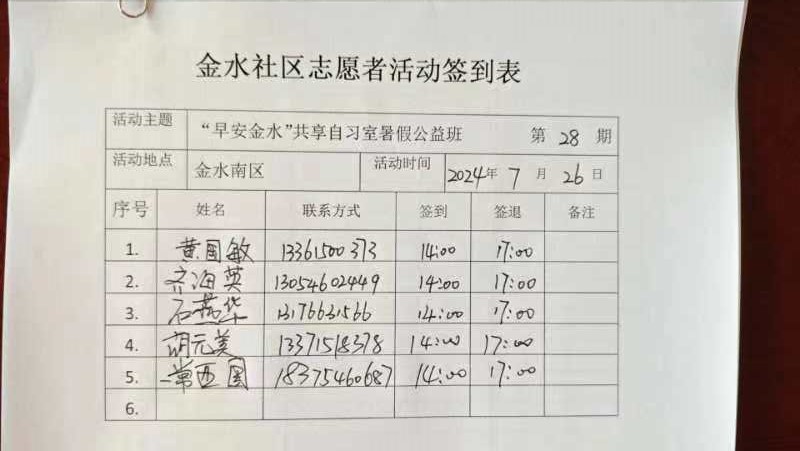 金水社区志愿者活动签到表
活动主题 “早安金水”共享自习室暑假公益班 第 28 期
活动地点 金水南区 活动时间 2024年 7 月 26 日
序号 姓名 联系方式 签到 签退 备注
1. 黄国敏 13361500373 14:00 17:00
2. 齐海英 13054602449 14:00 17:00
3. 石燕华 13176631566 14:00 17:00
4. 胡元美 13371518378 14:00 17:00
5. 常西国 18375460687 14:00 17:00
6.